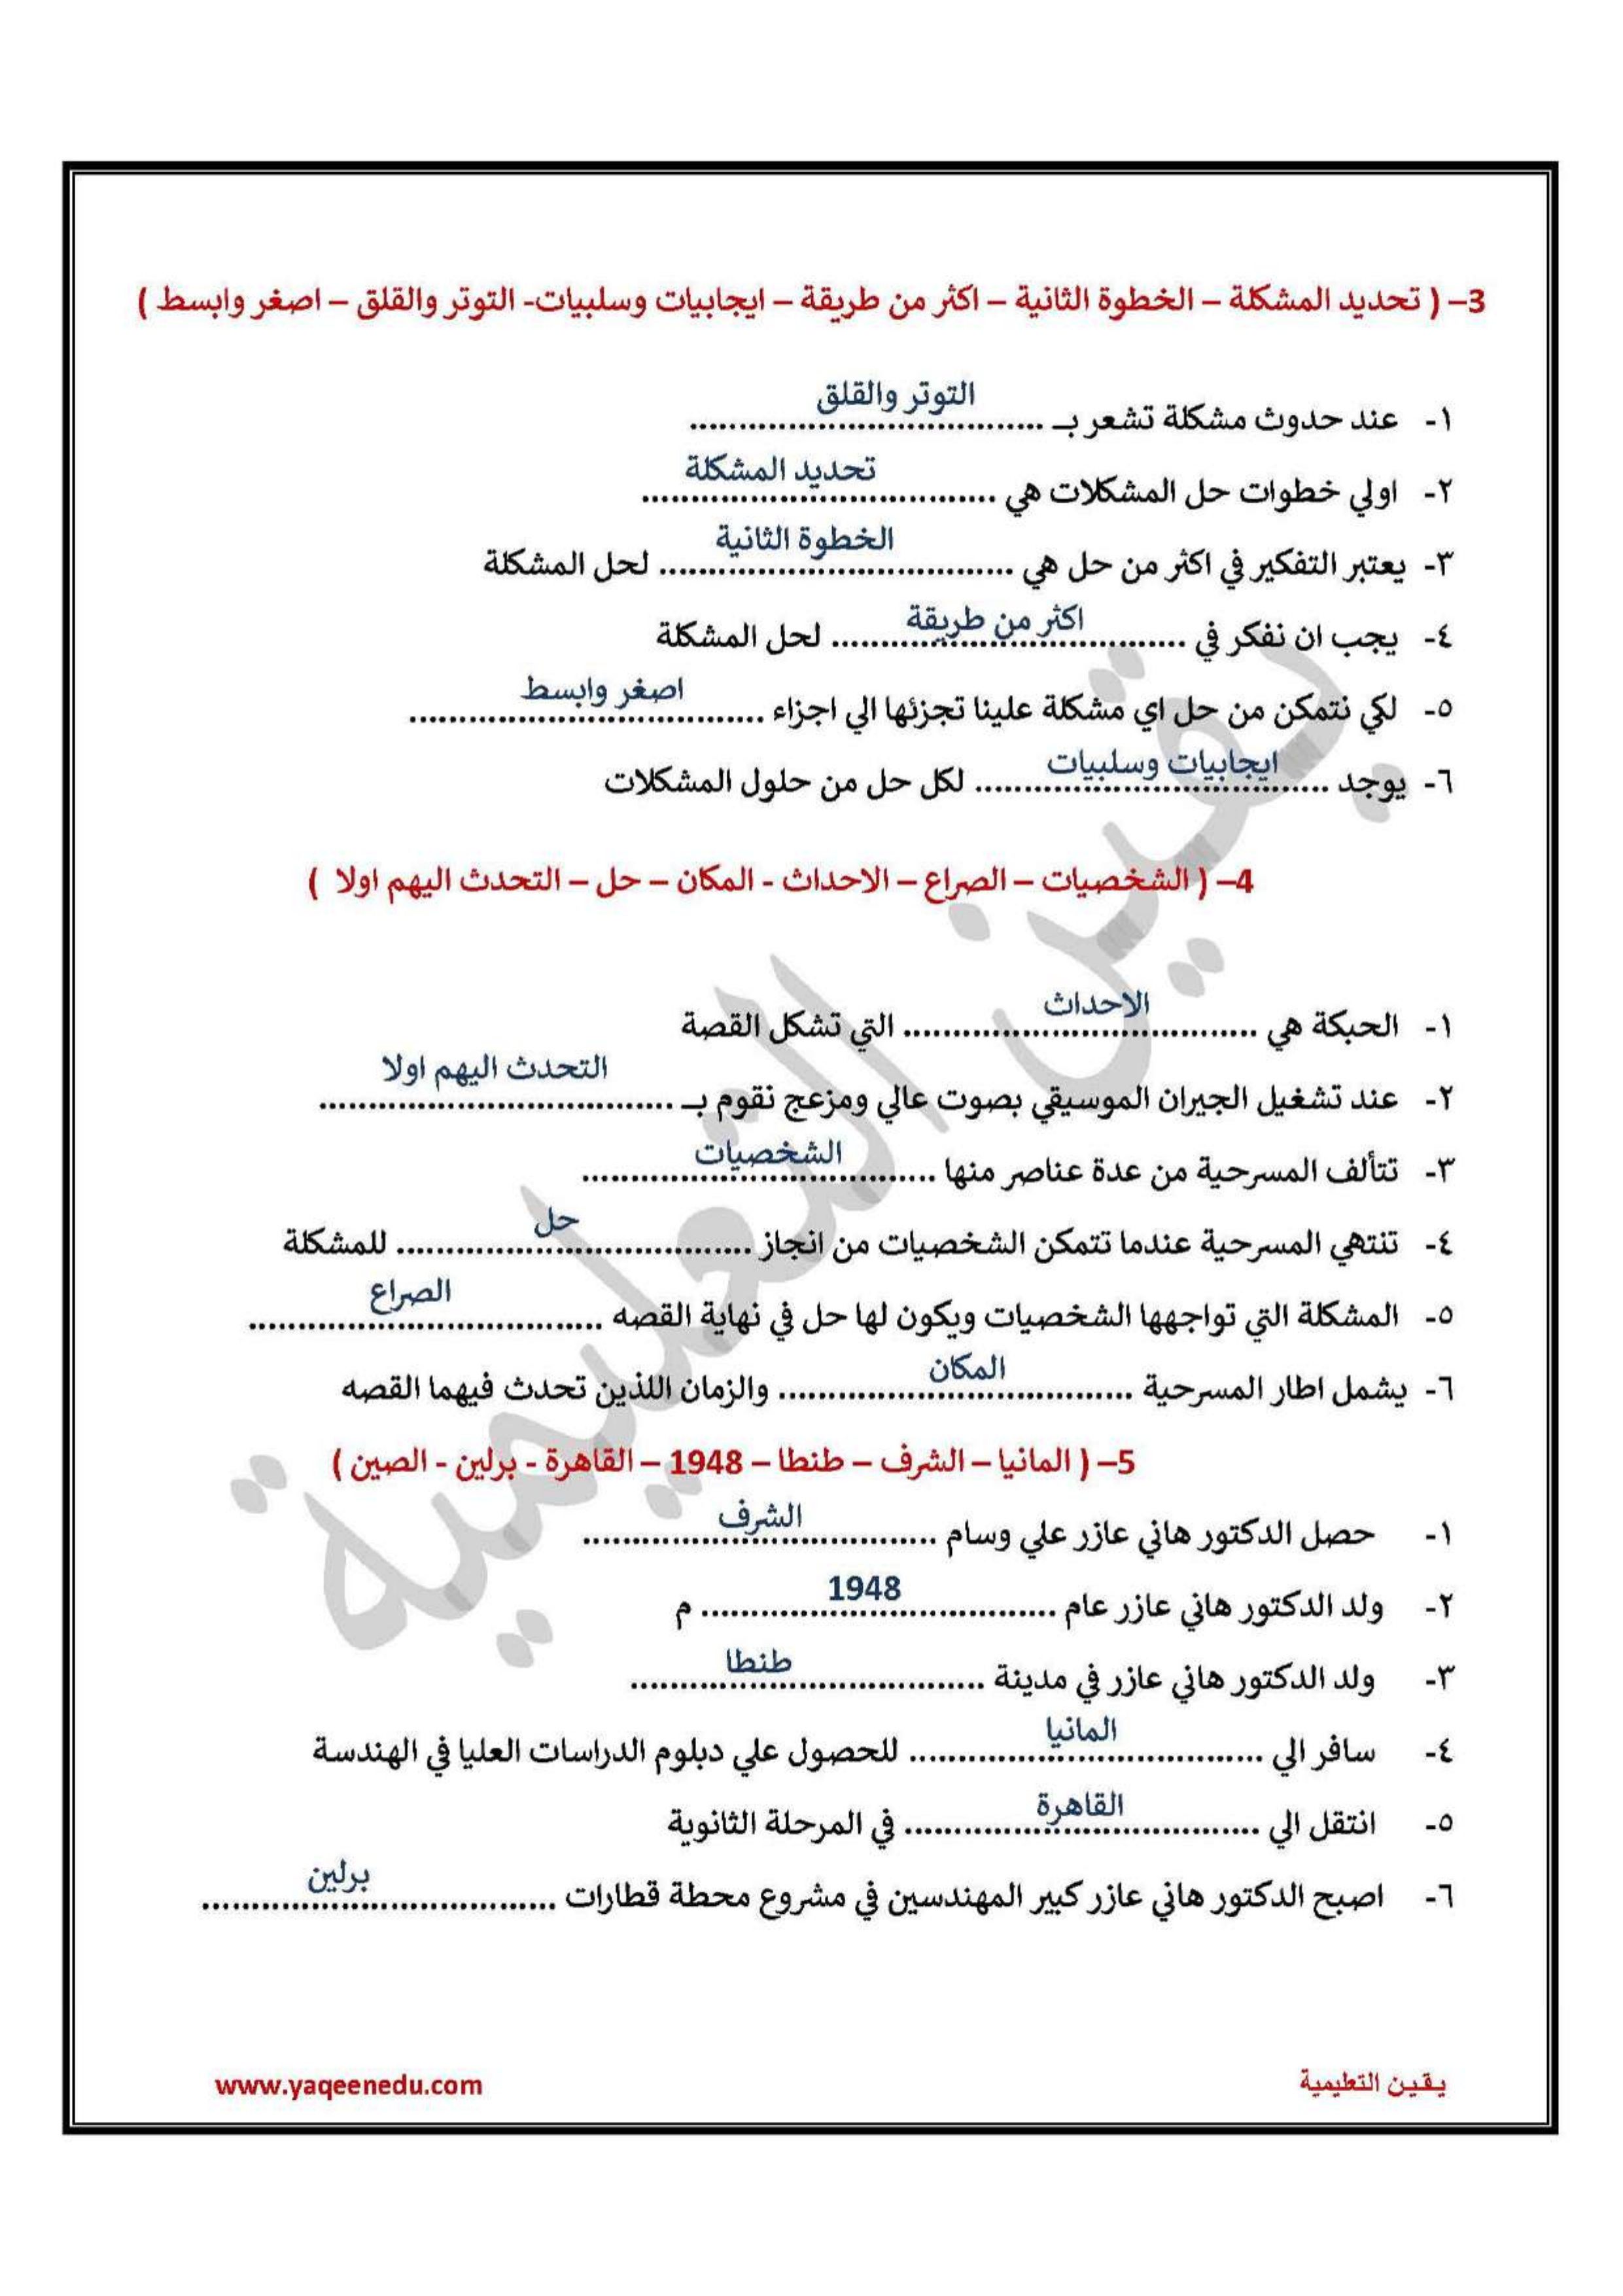 3– ( تحديد المشكلة – الخطوة الثانية – اكثر من طريقة – ايجابيات وسلبيات- التوتر والقلق – اصغر وابسط )
١- عند حدوث مشكلة تشعر بـ .................................... التوتر والقلق
٢- اولي خطوات حل المشكلات هي .................................... تحديد المشكلة
٣- يعتبر التفكير في اكثر من حل هي .................................... الخطوة الثانية لحل المشكلة
٤- يجب ان نفكر في .................................... اكثر من طريقة لحل المشكلة
٥- لكي نتمكن من حل اي مشكلة علينا تجزئها الي اجزاء .................................... اصغر وابسط
٦- يوجد .................................... ايجابيات وسلبيات لكل حل من حلول المشكلات
4– ( الشخصيات – الصراع – الاحداث - المكان – حل – التحدث اليهم اولا )
١- الحبكة هي .................................... الاحداث التي تشكل القصة
٢- عند تشغيل الجيران الموسيقي بصوت عالي ومزعج نقوم بـ .................................... التحدث اليهم اولا
٣- تتألف المسرحية من عدة عناصر منها .................................... الشخصيات
٤- تنتهي المسرحية عندما تتمكن الشخصيات من انجاز .................................... حل للمشكلة
٥- المشكلة التي تواجهها الشخصيات ويكون لها حل في نهاية القصه .................................... الصراع
٦- يشمل اطار المسرحية .................................... المكان والزمان اللذين تحدث فيهما القصه
5– ( المانيا – الشرف – طنطا – 1948 – القاهرة - برلين - الصين )
١- حصل الدكتور هاني عازر علي وسام .................................... الشرف
٢- ولد الدكتور هاني عازر عام .................................... 1948 م
٣- ولد الدكتور هاني عازر في مدينة .................................... طنطا
٤- سافر الي .................................... المانيا للحصول علي دبلوم الدراسات العليا في الهندسة
٥- انتقل الي .................................... القاهرة في المرحلة الثانوية
٦- اصبح الدكتور هاني عازر كبير المهندسين في مشروع محطة قطارات .................................... برلين
يقين التعليمية
يقين التعليمية www.yaqeenedu.com